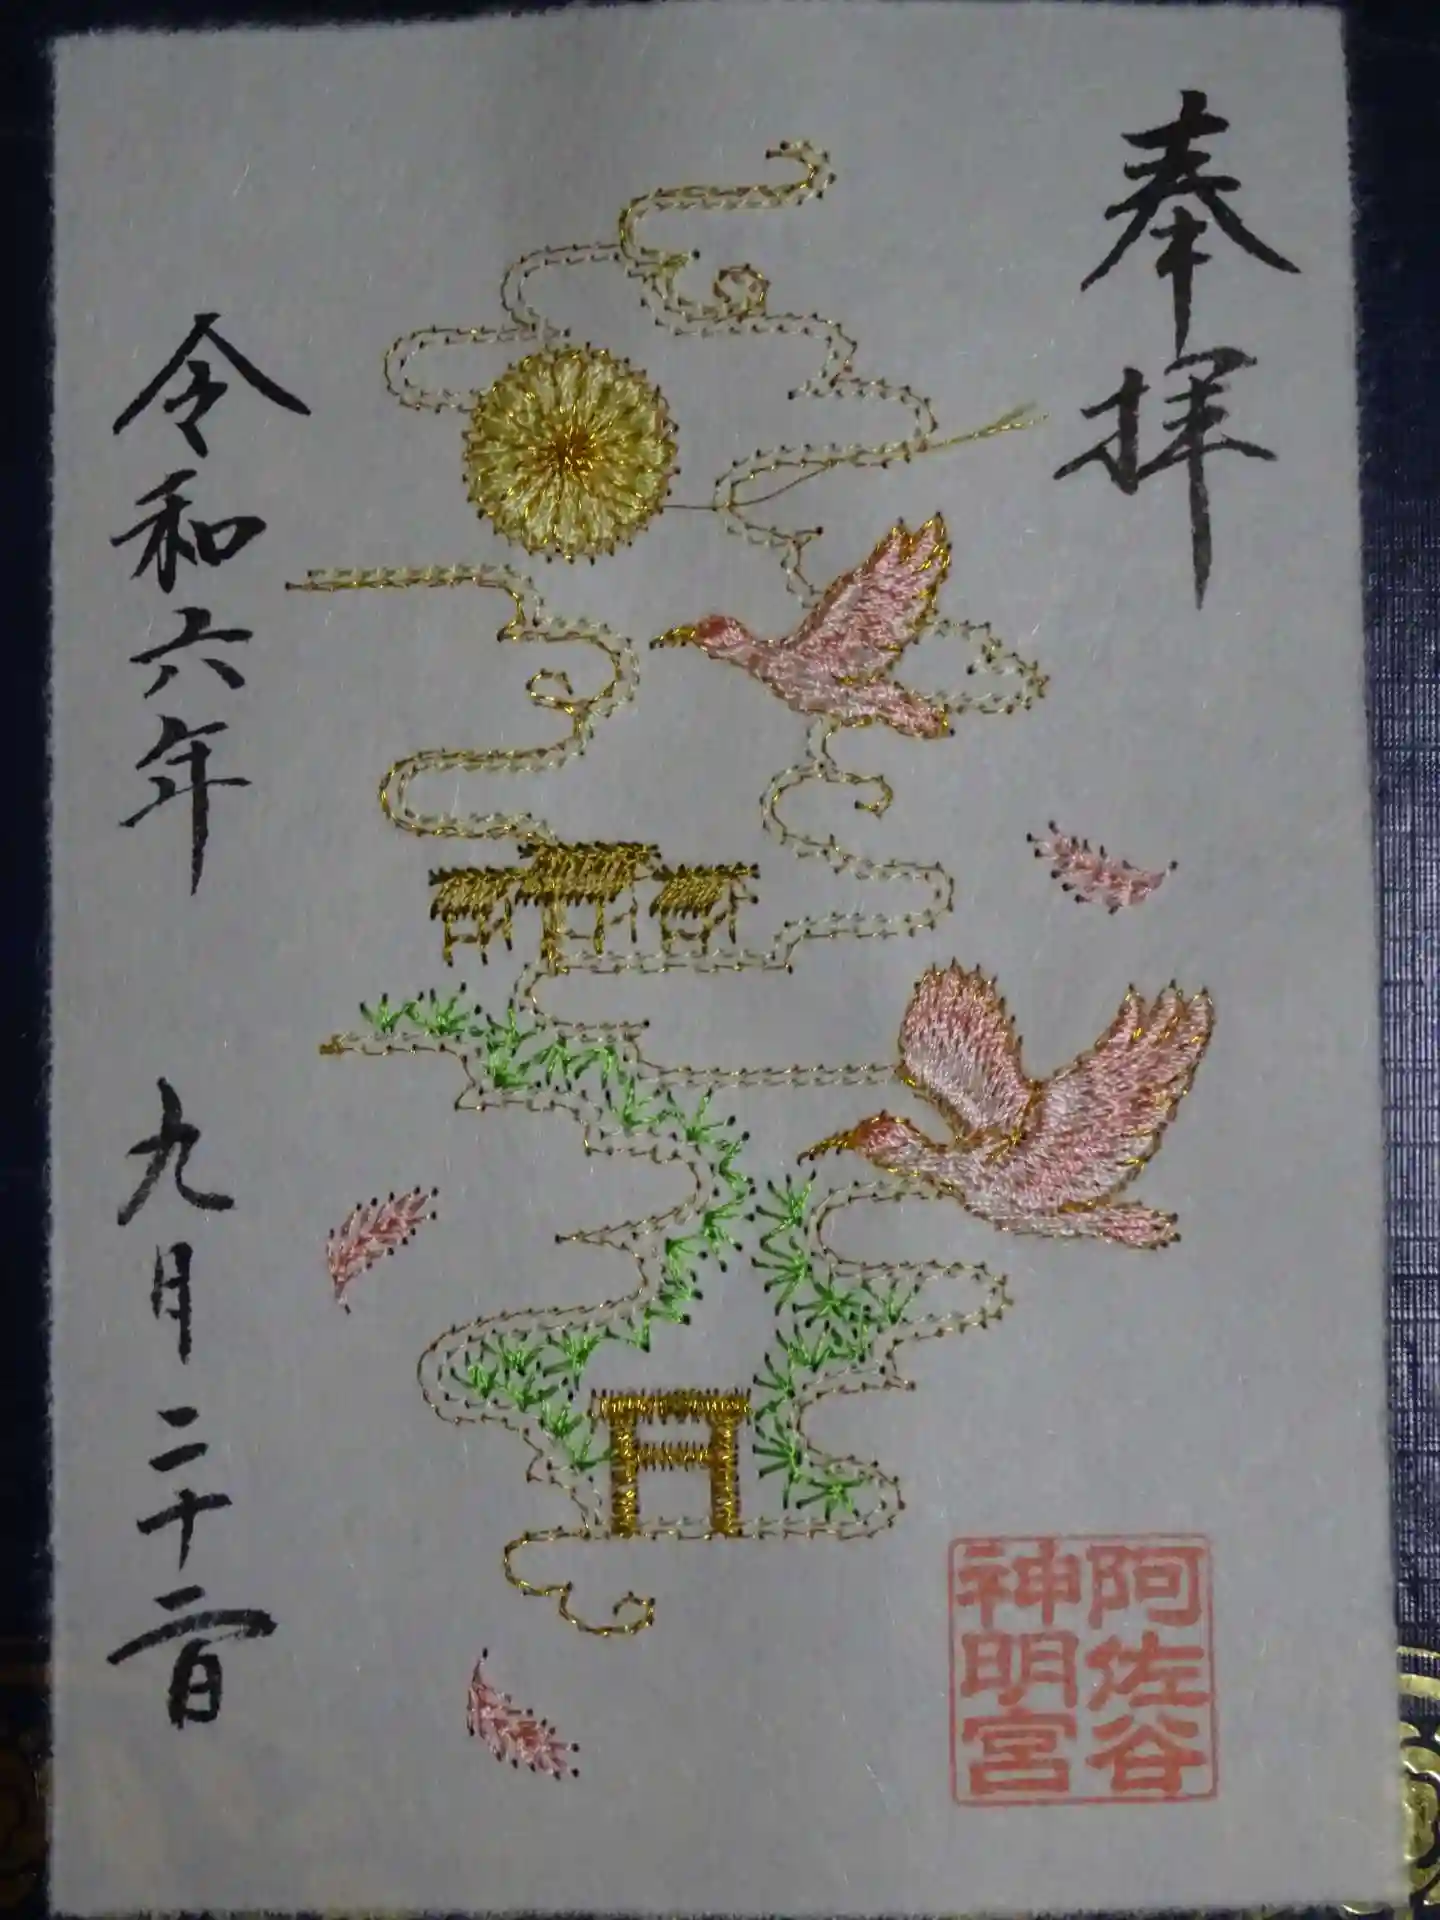 奉拝
阿佐谷
神明宮
令和六年 九月二十二日